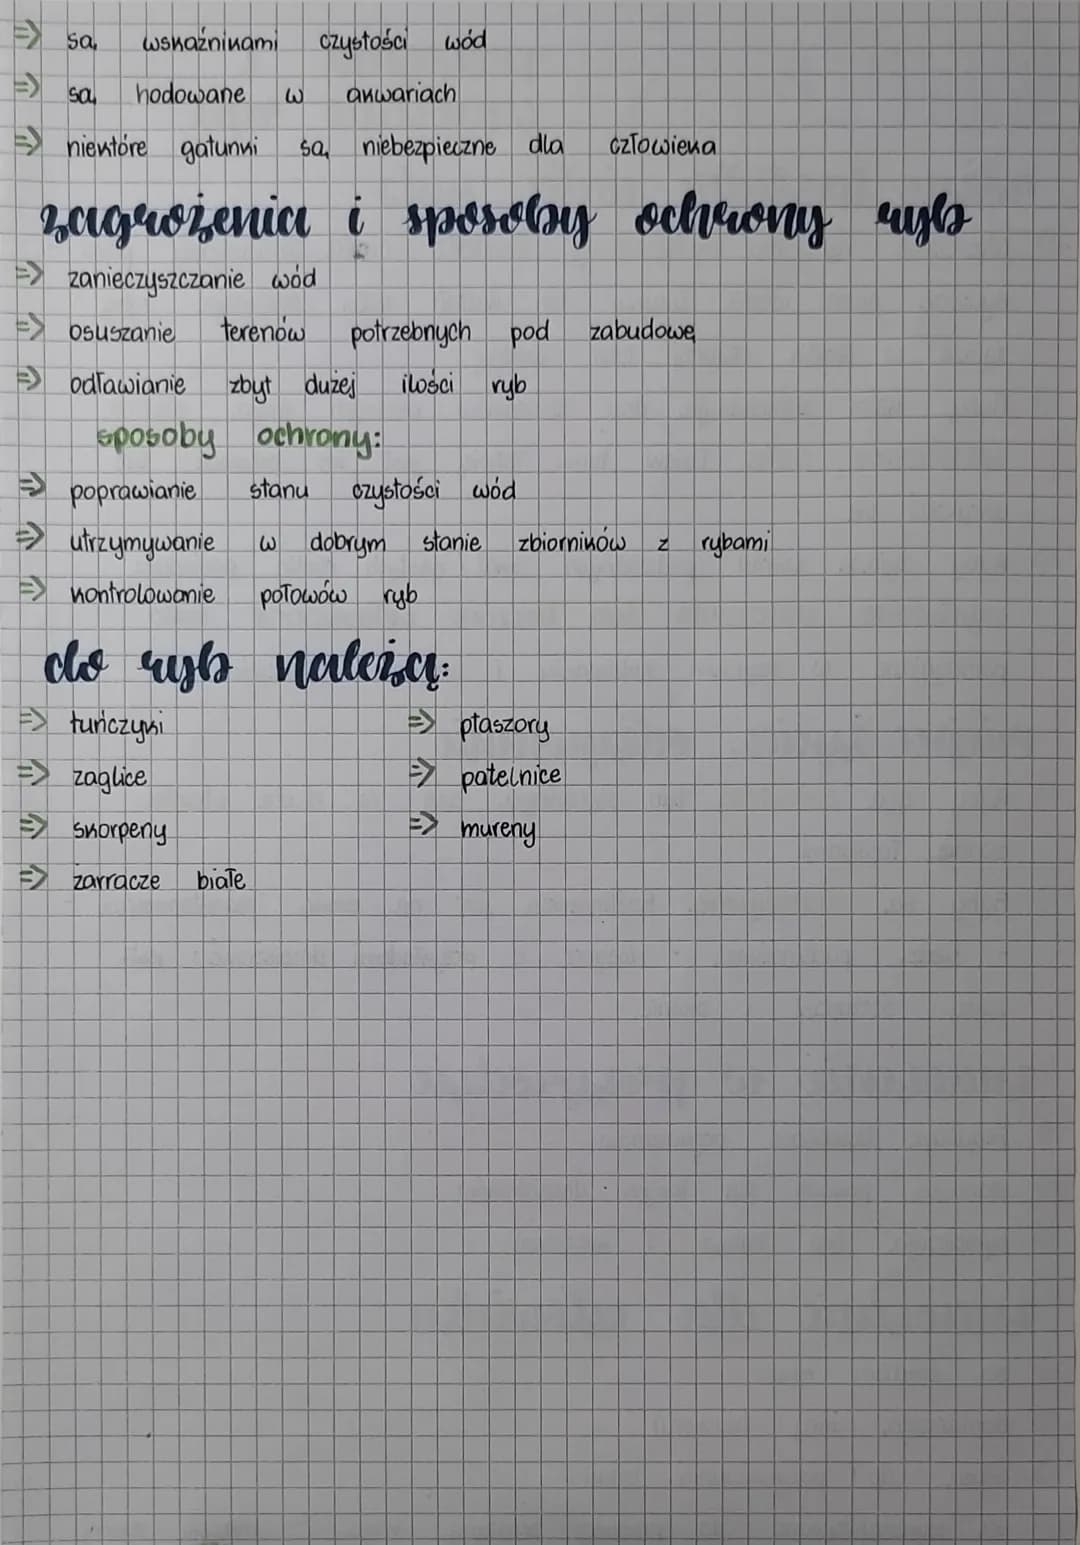 => są wskaźnikami czystości wód
=> są hodowane w akwariach
=> niektóre gatunki są niebezpieczne dla człowieka
zagrożenia i sposoby ochrony ryb
=> zanieczyszczanie wód
=> osuszanie terenów potrzebnych pod zabudowę
=> odławianie zbyt dużej ilości ryb
sposoby ochrony:
=> poprawianie stanu czystości wód
=> utrzymywanie w dobrym stanie zbiorników z rybami
=> kontrolowanie połowów ryb
do ryb należą:
=> tuńczyki => płaszory
=> żaglice => patelnice
=> skorpeny => mureny
=> żarracze białe